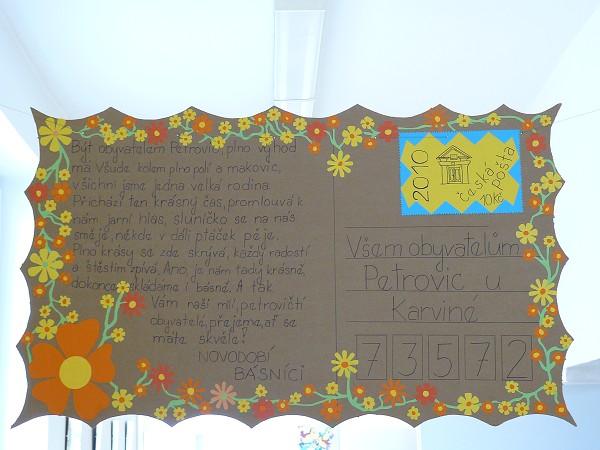 Být obyvatelem Petrovic, plno výhod
má. Všude kolem plno polí a makovic,
všichni jsme jedna velká rodina.
Přichází ten krásný čas, promlouvá k
nám jarní hlas, sluníčko se na nás
směje, někde v dáli ptáček pěje.
Plno krásy se zde skrývá, každý radostí
a štěstím zpívá. Ano, je nám tady krásně,
dokonce skládáme i básně. A tak
Vám naši milí, petrovičtí
obyvatelé, přejeme, ať se
máte skvěle!
NOVODOBÍ
BÁSNÍCI
2010
Česká
pošta
10Kč
Všem obyvatelům
Petrovic u
Karviné
73572